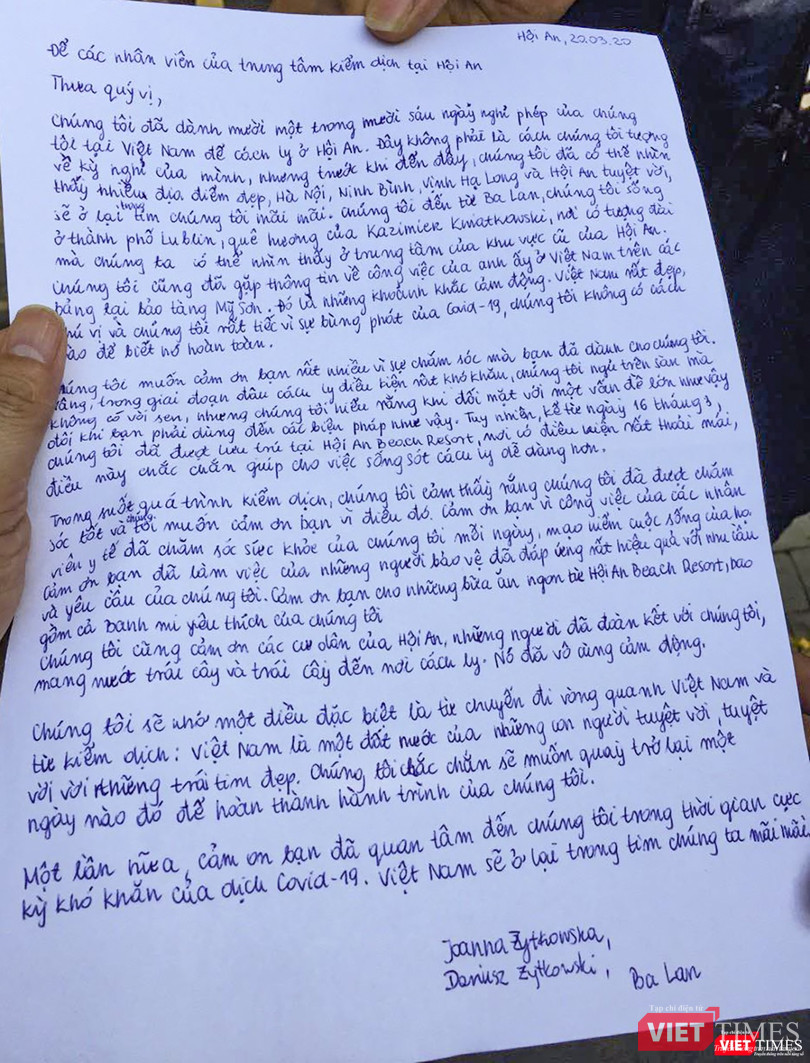 Hội An, 20.03.20
Để các nhân viên của trung tâm kiểm dịch tại Hội An
Thưa quý vị,
Chúng tôi đã dành mười một trong mười sáu ngày nghỉ phép của chúng
tôi tại Việt Nam để cách ly ở Hội An. Đây không phải là cách chúng tôi tượng
về kỳ nghỉ của mình, nhưng trước khi đến đây, chúng tôi đã có thể nhìn
thấy nhiều địa điểm đẹp, Hà Nội, Ninh Bình, vịnh Hạ Long và Hội An tuyệt vời,
sẽ ở lại trong tim chúng tôi mãi mãi. Chúng tôi đến từ Ba Lan, chúng tôi sống
ở thành phố Lublin, quê hương của Kazimierk Kwiatkowski, nơi có tượng đài
mà chúng ta có thể nhìn thấy ở trung tâm của khu vực cũ của Hội An.
Chúng tôi cũng đã gặp thông tin về công việc của anh ấy ở Việt Nam trên các
bảng tại bảo tàng Mỹ Sơn. Đó là những khoảnh khắc cảm động. Việt Nam rất đẹp,
thú vị và chúng tôi rất tiếc vì sự bùng phát của Covid-19, chúng tôi không có cách
nào để biết nó hoàn toàn.
Chúng tôi muốn cảm ơn bạn rất nhiều vì sự chăm sóc mà bạn đã dành cho chúng tôi.
Vâng, trong giai đoạn đầu cách ly điều kiện rất khó khăn, chúng tôi ngủ trên sàn mà
không có vòi sen, nhưng chúng tôi hiểu rằng khi đối mặt với một vấn đề lớn như vậy
đôi khi bạn phải dùng đến các biện pháp như vậy. Tuy nhiên, kể từ ngày 16 tháng 3,
chúng tôi đã được lưu trú tại Hội An Beach Resort, nơi có điều kiện rất thoải mái,
điều này chắc chắn giúp cho việc sống sót cách ly dễ dàng hơn.
Trong suốt quá trình kiểm dịch, chúng tôi cảm thấy rằng chúng tôi đã được chăm
sóc tốt và chúng tôi muốn cảm ơn bạn vì điều đó. Cảm ơn bạn vì công việc của các nhân
viên y tế đã chăm sóc sức khỏe của chúng tôi mỗi ngày, mạo hiểm cuộc sống của họ.
Cảm ơn bạn đã làm việc của những người bảo vệ đã đáp ứng rất hiệu quả với nhu cầu
và yêu cầu của chúng tôi. Cảm ơn bạn cho những bữa ăn ngon từ Hội An Beach Resort, bao
gồm cả Banh mi yêu thích của chúng tôi
Chúng tôi cũng cảm ơn các cư dân của Hội An, những người đã đoàn kết với chúng tôi,
mang nước trái cây và trái cây đến nơi cách ly. Nó đã vô cùng cảm động.
Chúng tôi sẽ nhớ một điều đặc biệt là từ chuyến đi vòng quanh Việt Nam và
từ kiểm dịch: Việt Nam là một đất nước của những con người tuyệt vời, tuyệt
vời với những trái tim đẹp. Chúng tôi chắc chắn sẽ muốn quay trở lại một
ngày nào đó để hoàn thành hành trình của chúng tôi.
Một lần nữa, cảm ơn bạn đã quan tâm đến chúng tôi trong thời gian cực
kỳ khó khăn của dịch Covid-19. Việt Nam sẽ ở lại trong tim chúng ta mãi mãi.
Joanna Żytkowska,
Dariusz Żytkowski, Ba Lan
Tạp chí điện tử
VIETTIMES
VIETTIMES